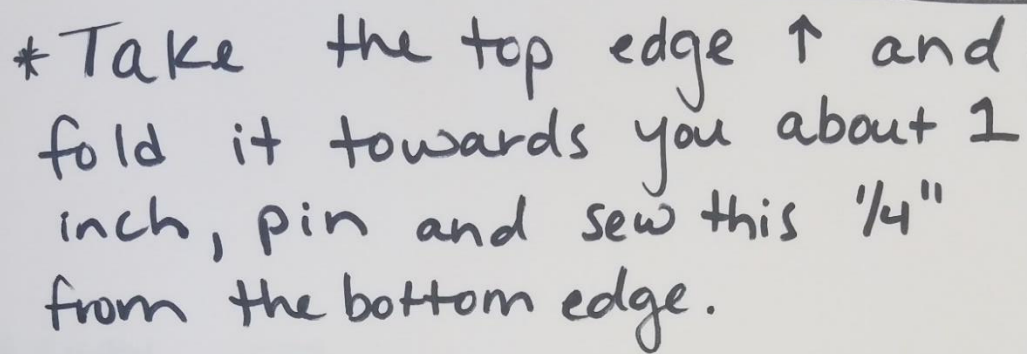 * Take the top edge ↑ and
fold it towards you about 1
inch, pin and sew this 1/4"
from the bottom edge.